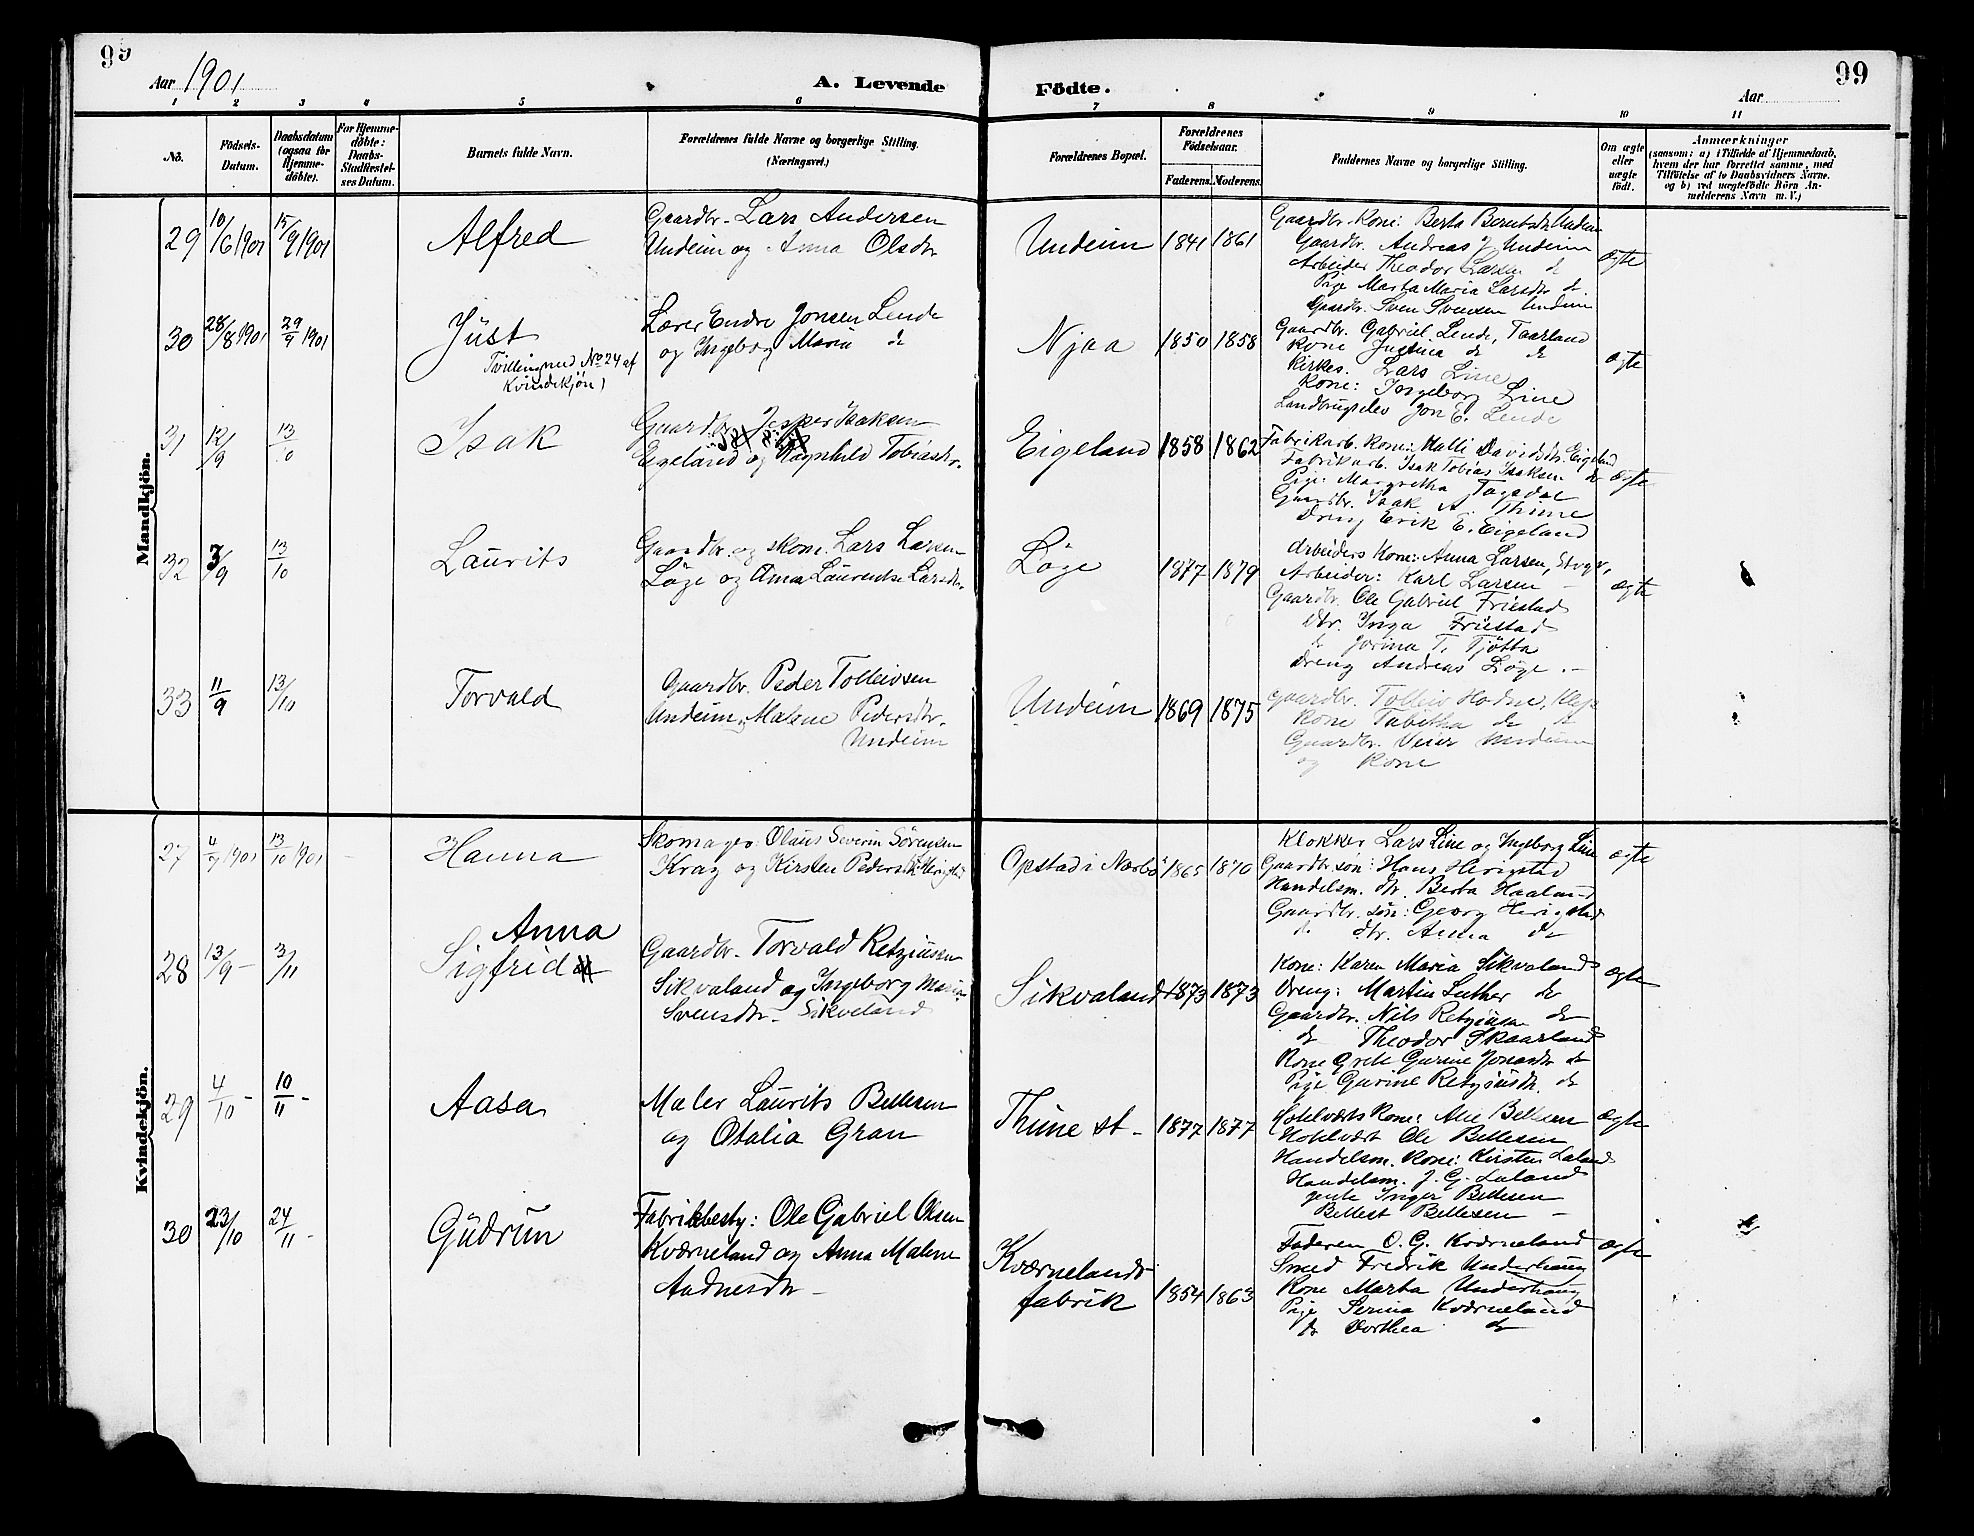 99
Aar 1901
A. Levende
1 2 3 4 5 6
No.
Födsels-
Datum.
Daabsdatum
(ogsaa for
Hjemme-
döbte).
For Hjemme-
döbte:
Daabs-
Stadfæstel-
ses Datum.
Barnets fulde Navn.
Forældrenes fulde Navne og borgerlige Stilling.
(Næringsvei.)
Födte.
99
Aar
7 8 9 10 11
Forældrenes Bopæl.
Forældrenes
Födselsaar.
Faderens. Moderens.
Faddernes Navne og borgerlige Stilling.
Om ægte
eller
uægte
födt.
Anmærkninger
(saasom: a) i Tilfælde af Hjemmedaab,
hvem der har forrettet samme, med
Tilföielse af to Daabsvidners Navne.
og b) ved uægtefödte Börn An-
melderens Navn m. V.)
Mandkjön.
29 10/6 1901 15/9 1901 Alfred
Gaardbr. Lars Andersen
Undeim og Anna Olsdtr
Undeim 1841 1861
Gaardbr. Kone: Berta Berntsdtr Undeim
Gaardbr. Andreas J. Undeim
Arbeider Theodor Larsen do
Pige Marta Maria Larsdtr do
Gaardbr. Sven Svensen Undeim
ægte
30 28/8 1901 29/9 1901 Just
Tvilling med No 24 af
Kvindekjön)
Lærer Endre Jonsen Lende
og Ingeborg Maria do
Njaa 1850 1858
Gaardbr. Gabriel Lende, Taarland
Kone Justina do do
Kirkes. Lars Line
Kone: Ingeborg Line
Landbrugselev Jon E. Lende
ægte
31 12/9 13/10 Isak
Gaardbr. Jesper Isaksen
Eigeland og Ragnhild Tobiasdtr.
Eigeland 1858 1862
Fabrikarb. Kone: Malli Davidsdtr. Eigeland
Fabrikarb. Isak Tobias Isaksen do
Pige: Margretha Togsdal
Gaardbr. Isak A. Thime
Dreng Erik E. Eigeland
ægte
32 3/9 13/10 Laurits
Gaardbr. og skom. Lars Larsen
Löge og Ama Laurentse Larsdtr.
Löge 1877 1879
Arbeiders Kone: Anna Larsen,
Arbeider: Karl Larsen –
Gaardbr. Ole Gabriel Friestad
Dtr. Inga Friestad
do Jorina T. Tjötta
Dreng Andreas Löge. –
ægte
33 11/9 13/10 Torvald
Gaardbr. Peder Tolleivsen
Undeim og Malene Pedersdtr.
Undeim
Undeim 1869 1875
Gaardbr. Tolleiv Hodne, Klep
Kone Tabitha do do
Gaardbr. Veier Undeim
og Kone
Kvindekjön.
27 4/9 1901 13/10 1901 – Hanna
Skomager Olaus Severin Sörensen
Krag og Kirsten Pedersdtr Herigstad
Opstad i Nærbö 1865 1870
Klokker Lars Line og Ingeborg Line
Gaardbr. sön: Hans Herigstad
Handelsm. dtr. Berta Haaland
Gaardbr. sön: Georg Herigstad
do dtr. Anna do
ægte
28 13/9 – 3/11 Anna
Sigfrid
Gaardbr. Torvald Retziusen
Sikvaland og Ingeborg Maria
Svensdtr. Sikveland
Sikvaland 1873 1873
Kone: Karen Maria Sikvaland
Dreng: Martin Luther do
Gaardbr. Nils Retziusen do
do Theodor Skaarland
Kone Grete Gurine Jonasdtr do
Pige Gurine Retziusdtr. do
ægte
29 4/10 – 10/11 – Aasa
Maler Laurits Bellesen
og Otalia Gran
Thime st – 1877 1877
Hotelværts Kone: Ane Bellesen
Hotelvært Ole Bellesen
Handelsm. Kone: Kirsten Laland
Handelsm. J. G. Laland
Inger Bellesen
Bellest Bellesen –
ægte
30 23/10 24/11 – Gudrun
Fabrikbesty: Ole Gabriel Olsen
Kværneland og Anna Malene
Aadnesdtr –
Kværnelands
fabrik 1854 1863
Faderen O. G. Kværneland
Smed Fredrik Underhaug
Kone Marta Underhaug
Pige Serina Kværneland
do Dorthea do
ægte